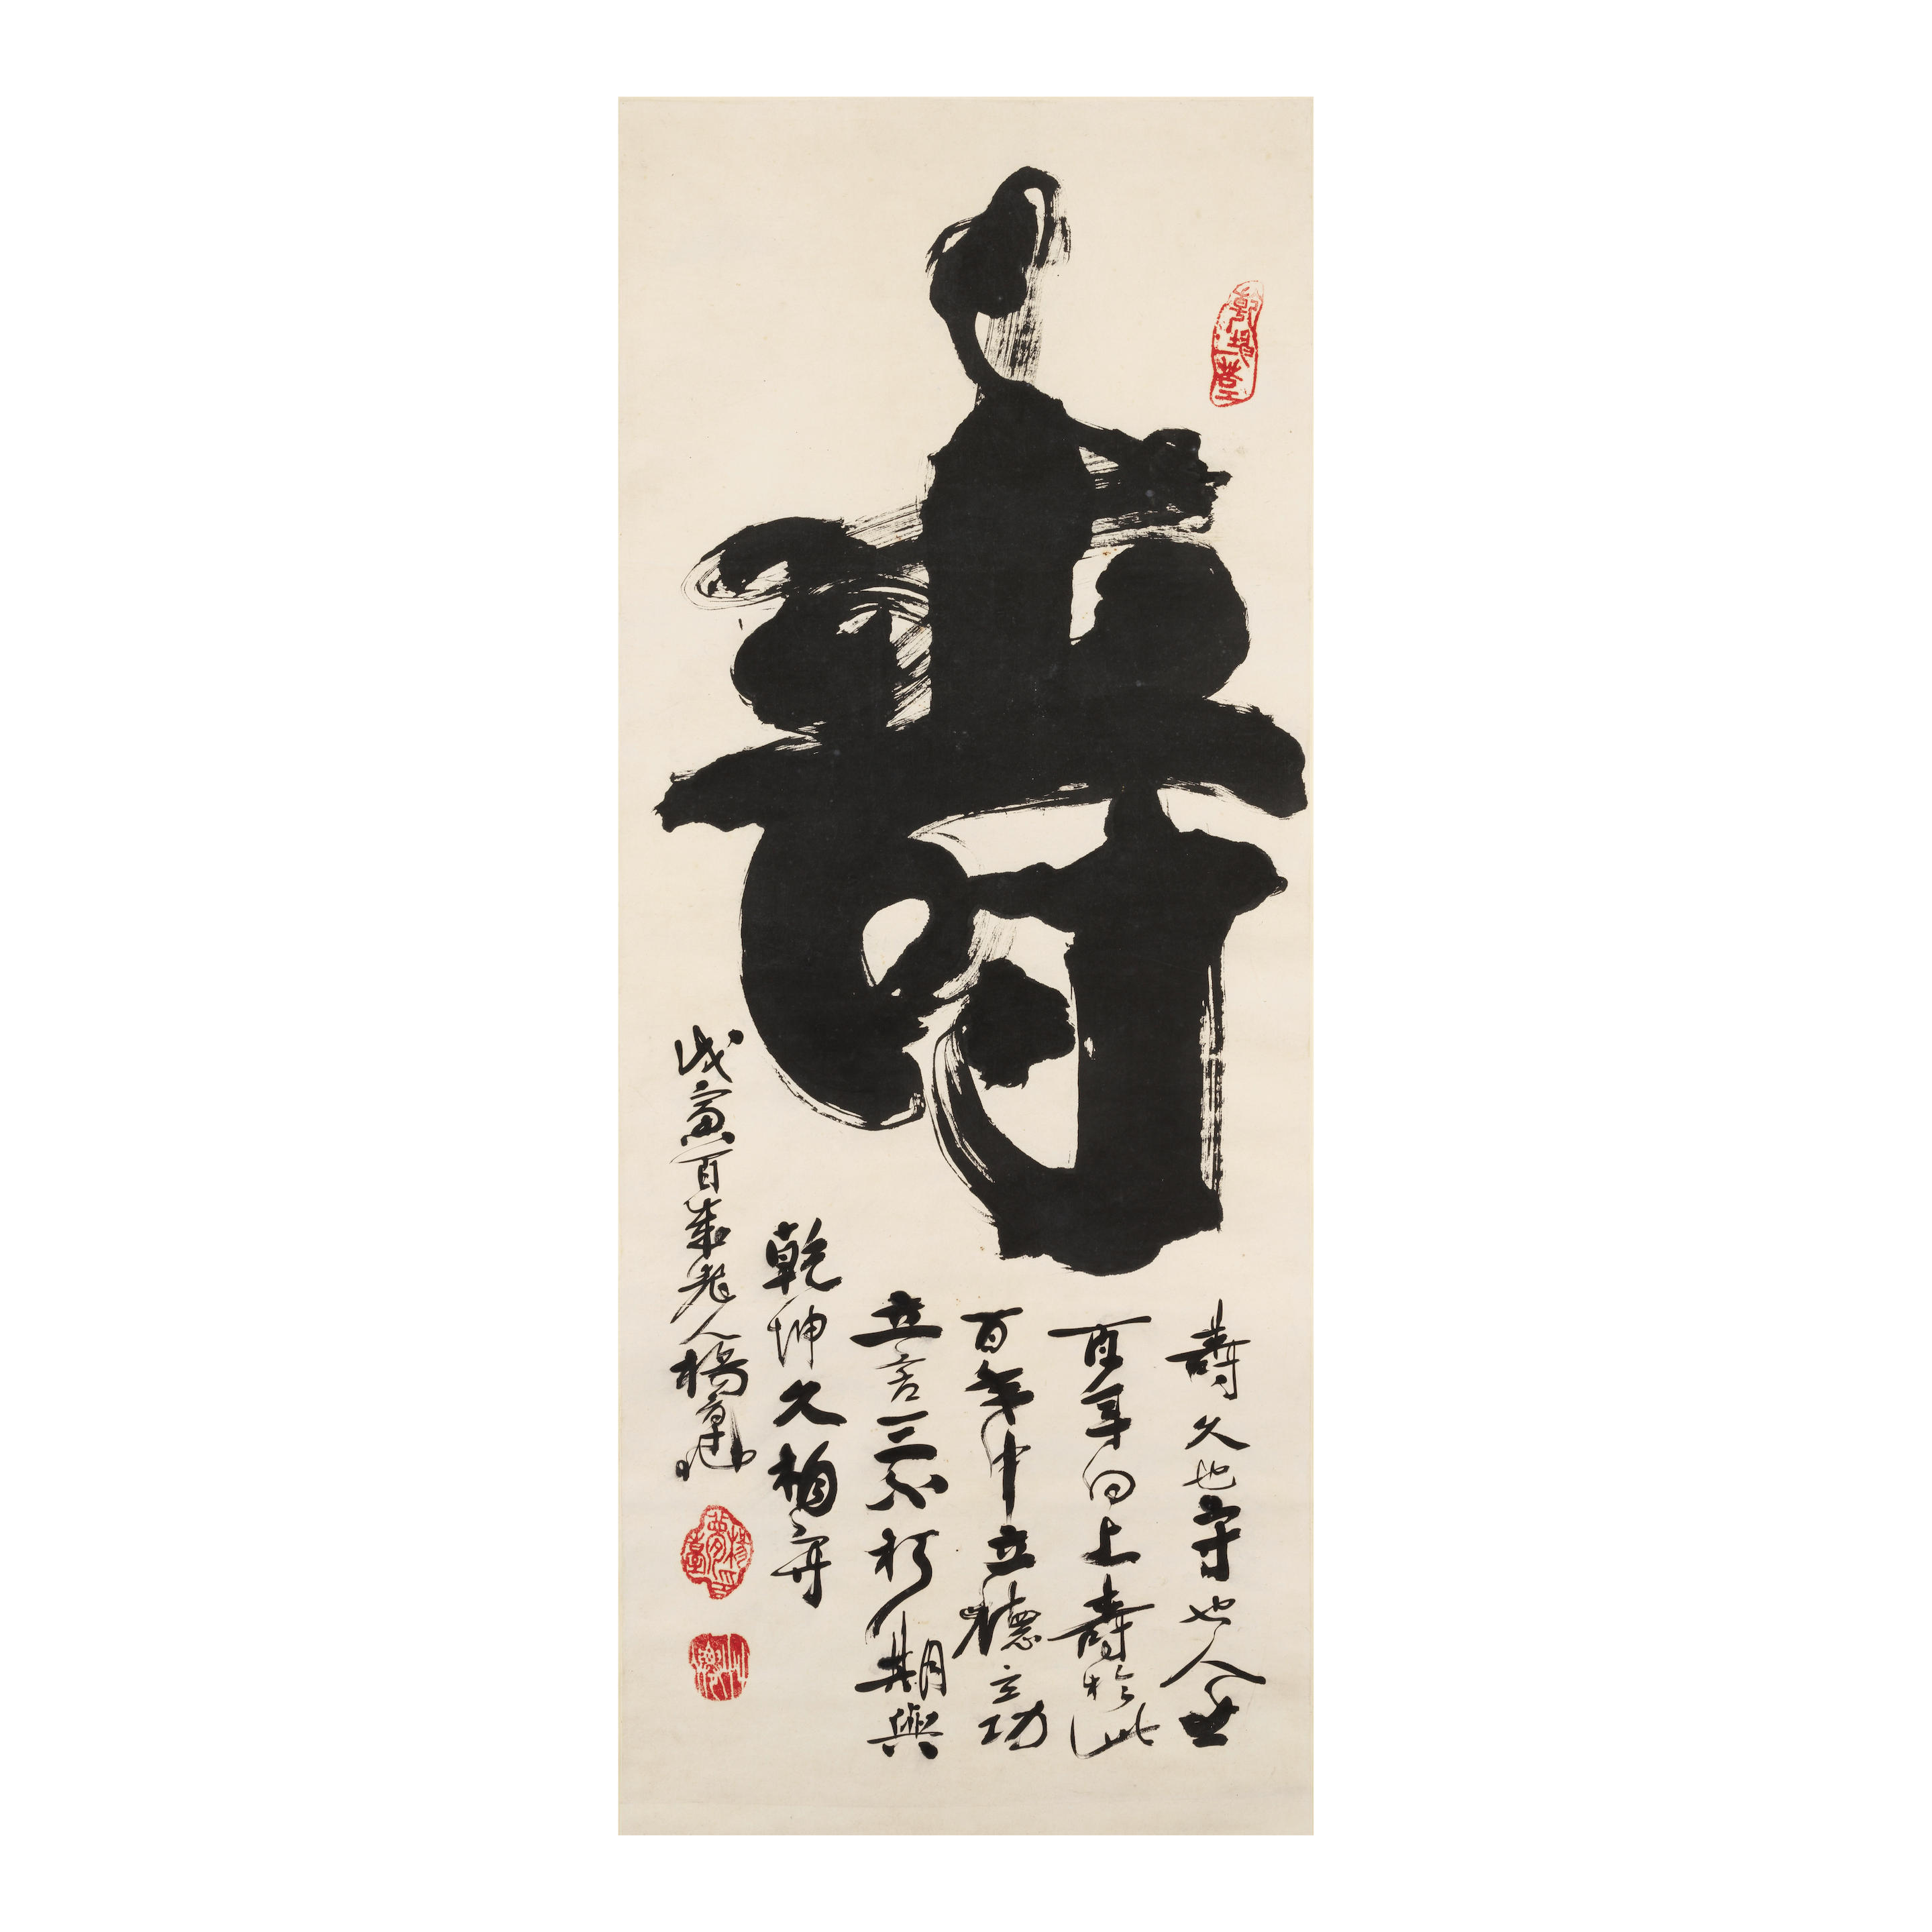 壽
壽久也守也人至
百年向上壽於此
百年中立德立功
立言三不朽期與
乾坤久相守
戊寅百歲老人楊草仙